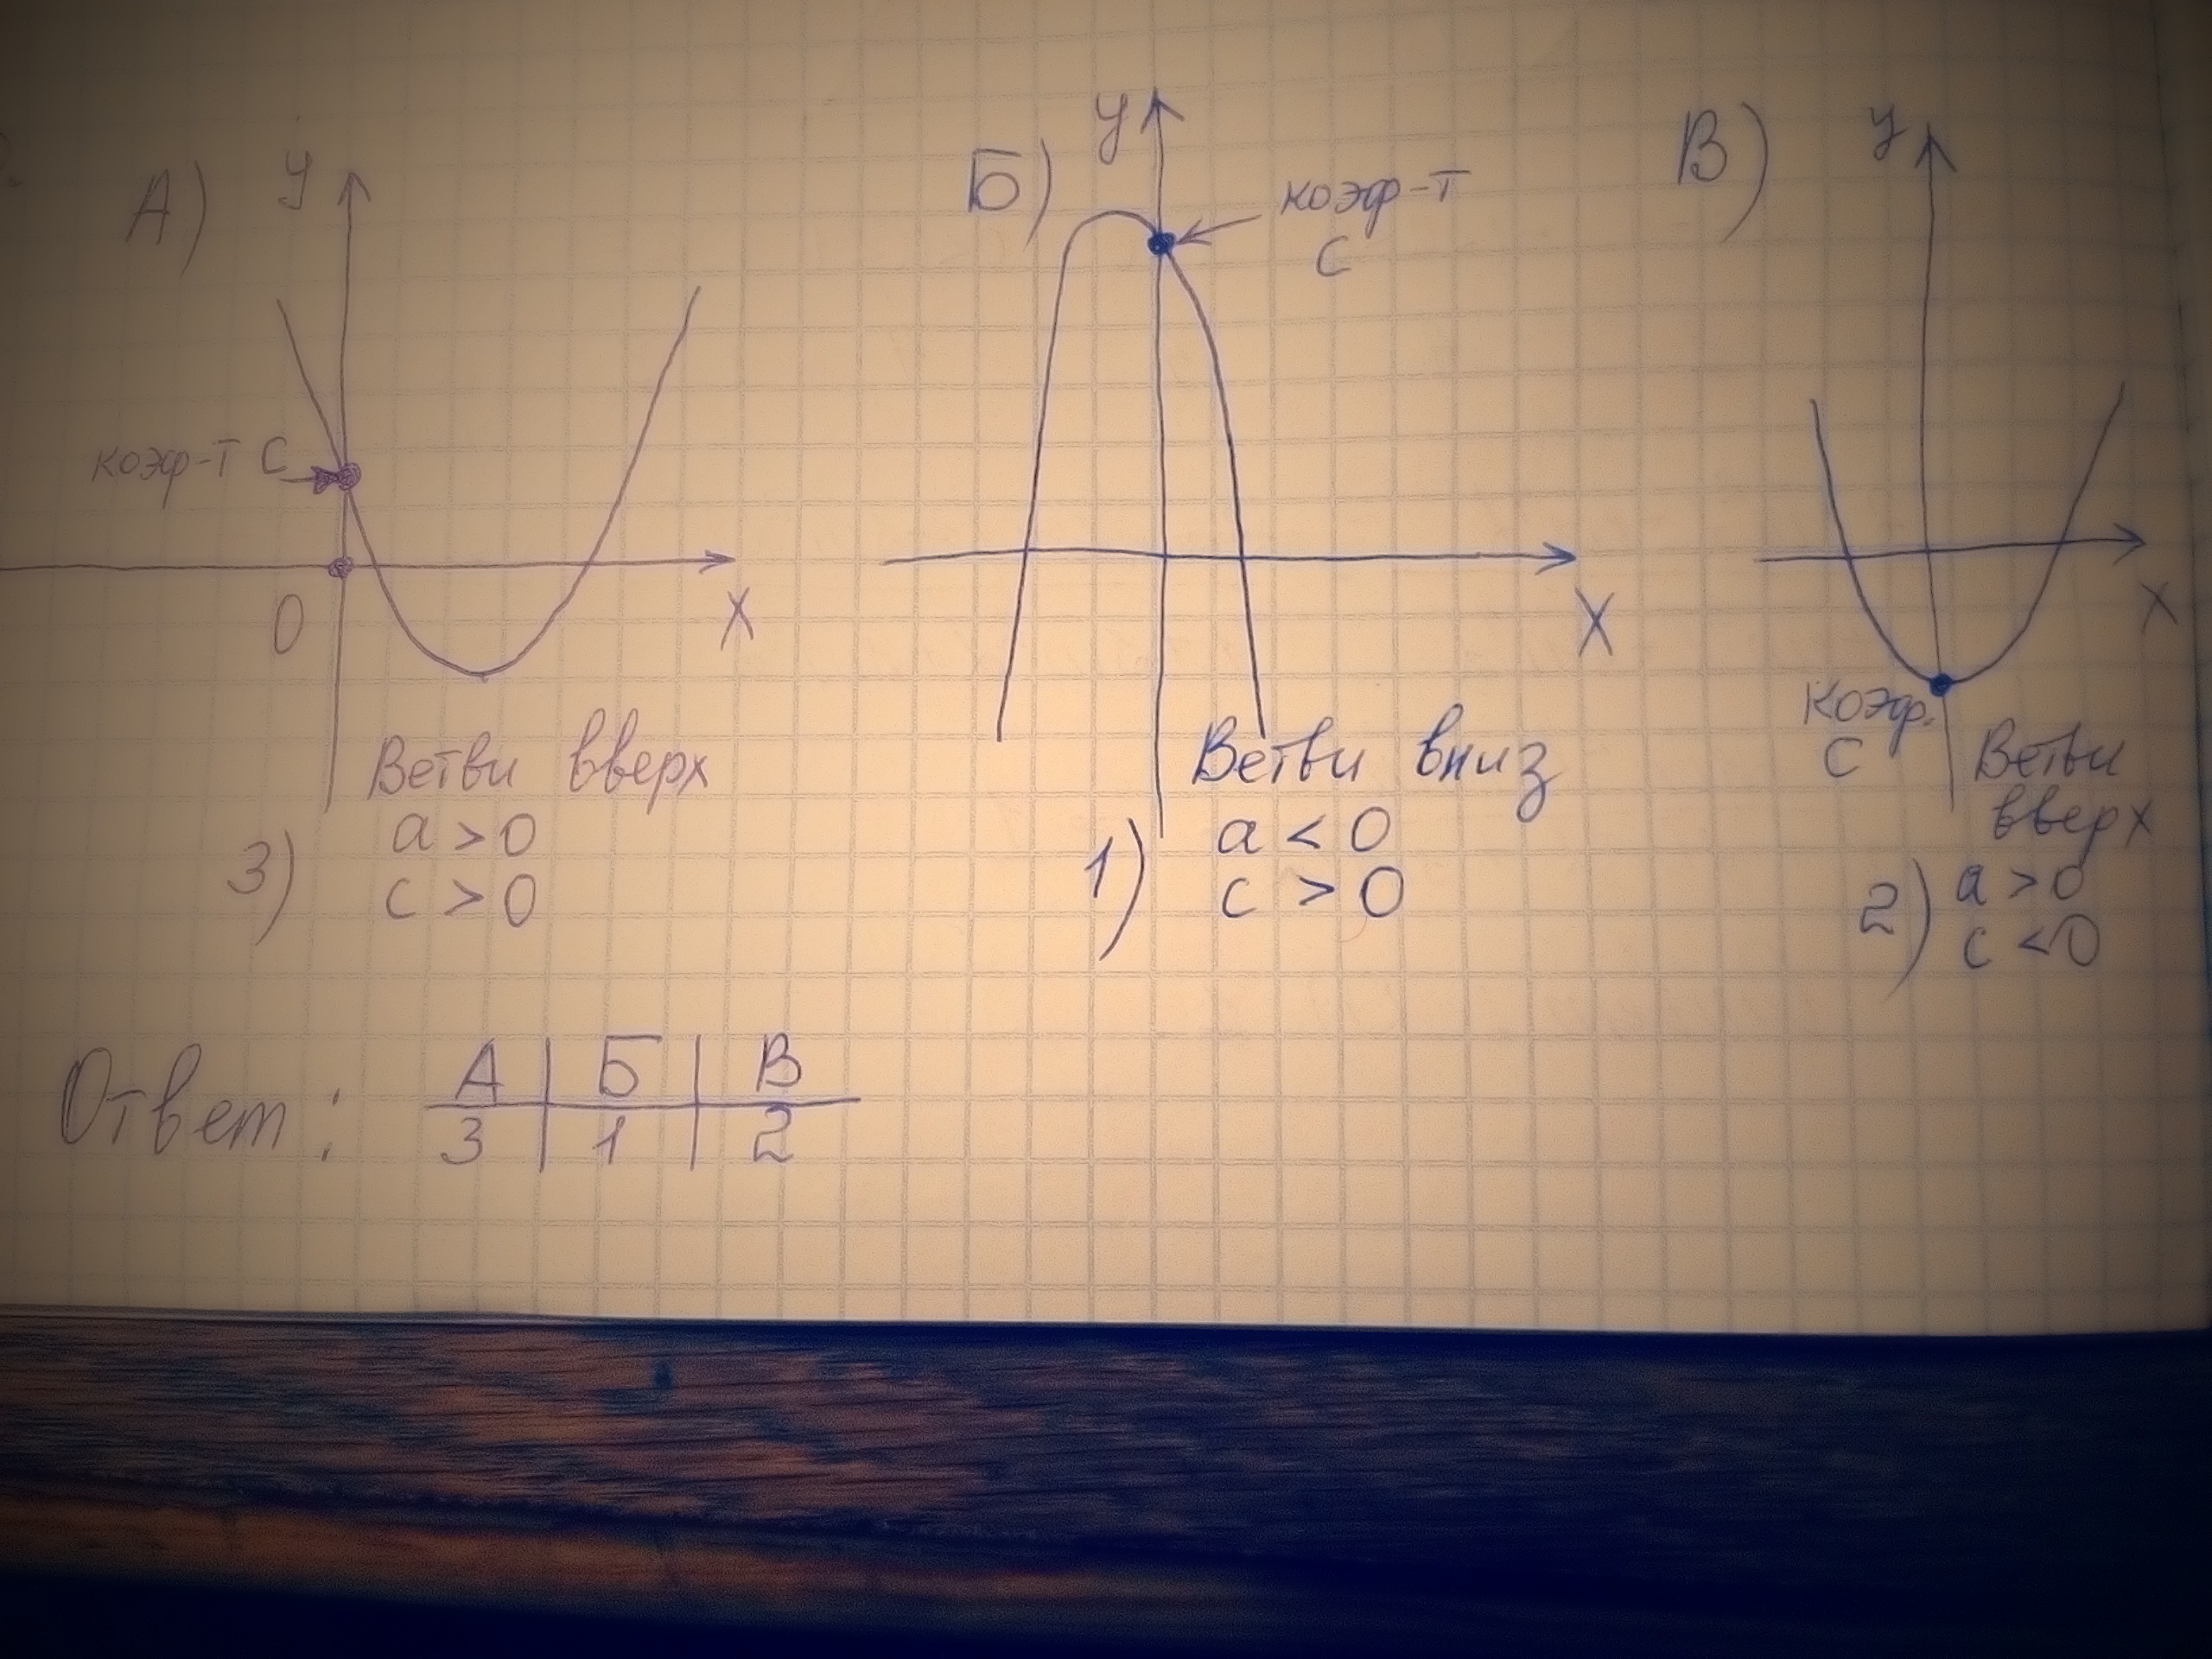 А)
у
коэф-т с
0
х
Ветви вверх
3)
a > 0
c > 0
Б)
у
коэф-т
с
х
Ветви вниз
1)
a < 0
c > 0
В)
у
х
коэф.
с
Ветви
вверх
2)
a > 0
c < 0
Ответ:
А | Б | В
3 | 1 | 2